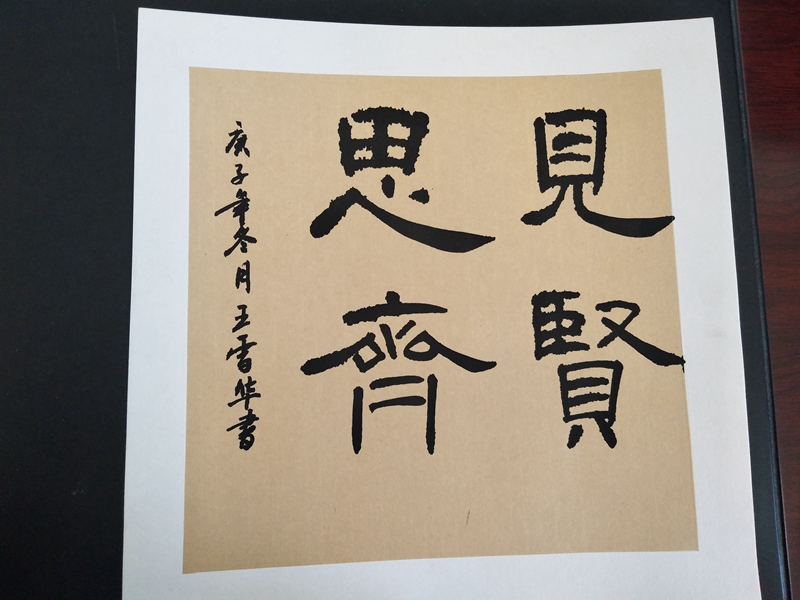 見賢
思齊
庚子年冬月王雪华書